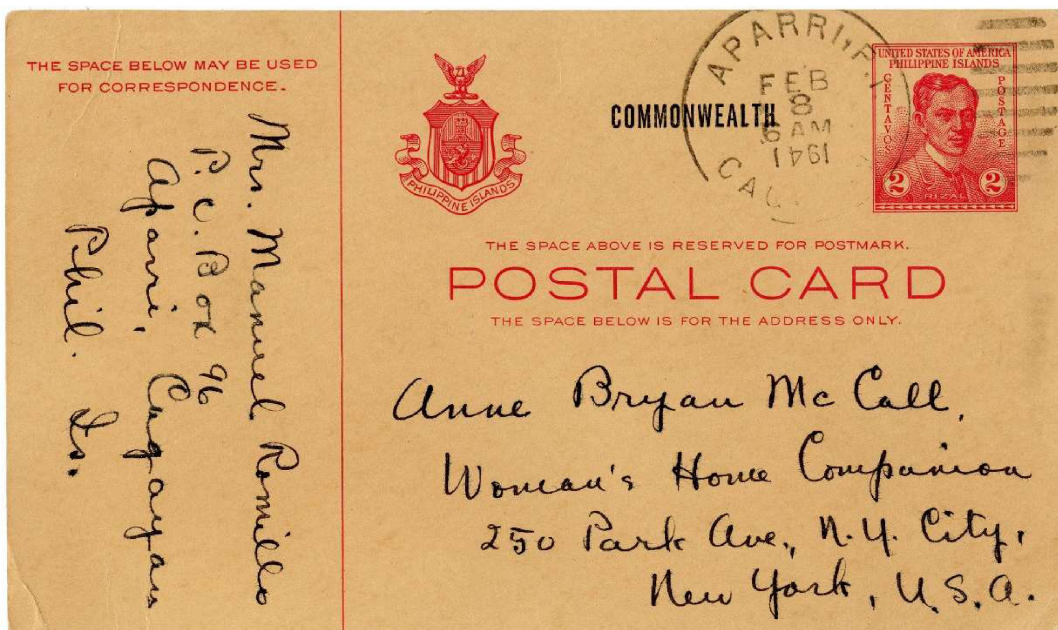 THE SPACE BELOW MAY BE USED
FOR CORRESPONDENCE.
Mrs. Manuel Romillo
P.O. Box 96
Aparri, Cagayan
Phil. Is.
PHILIPPINE ISLANDS
COMMONWEALTH
APARRI, P.I.
FEB
8
6 AM
1941
CAG
UNITED STATES OF AMERICA
PHILIPPINE ISLANDS
CENTAVOS
POSTAGE
2 2
RIZAL
THE SPACE ABOVE IS RESERVED FOR POSTMARK.
POSTAL CARD
THE SPACE BELOW IS FOR THE ADDRESS ONLY.
Anne Bryan McCall,
Woman's Home Companion
250 Park Ave., N.Y. City,
New York, U.S.A.